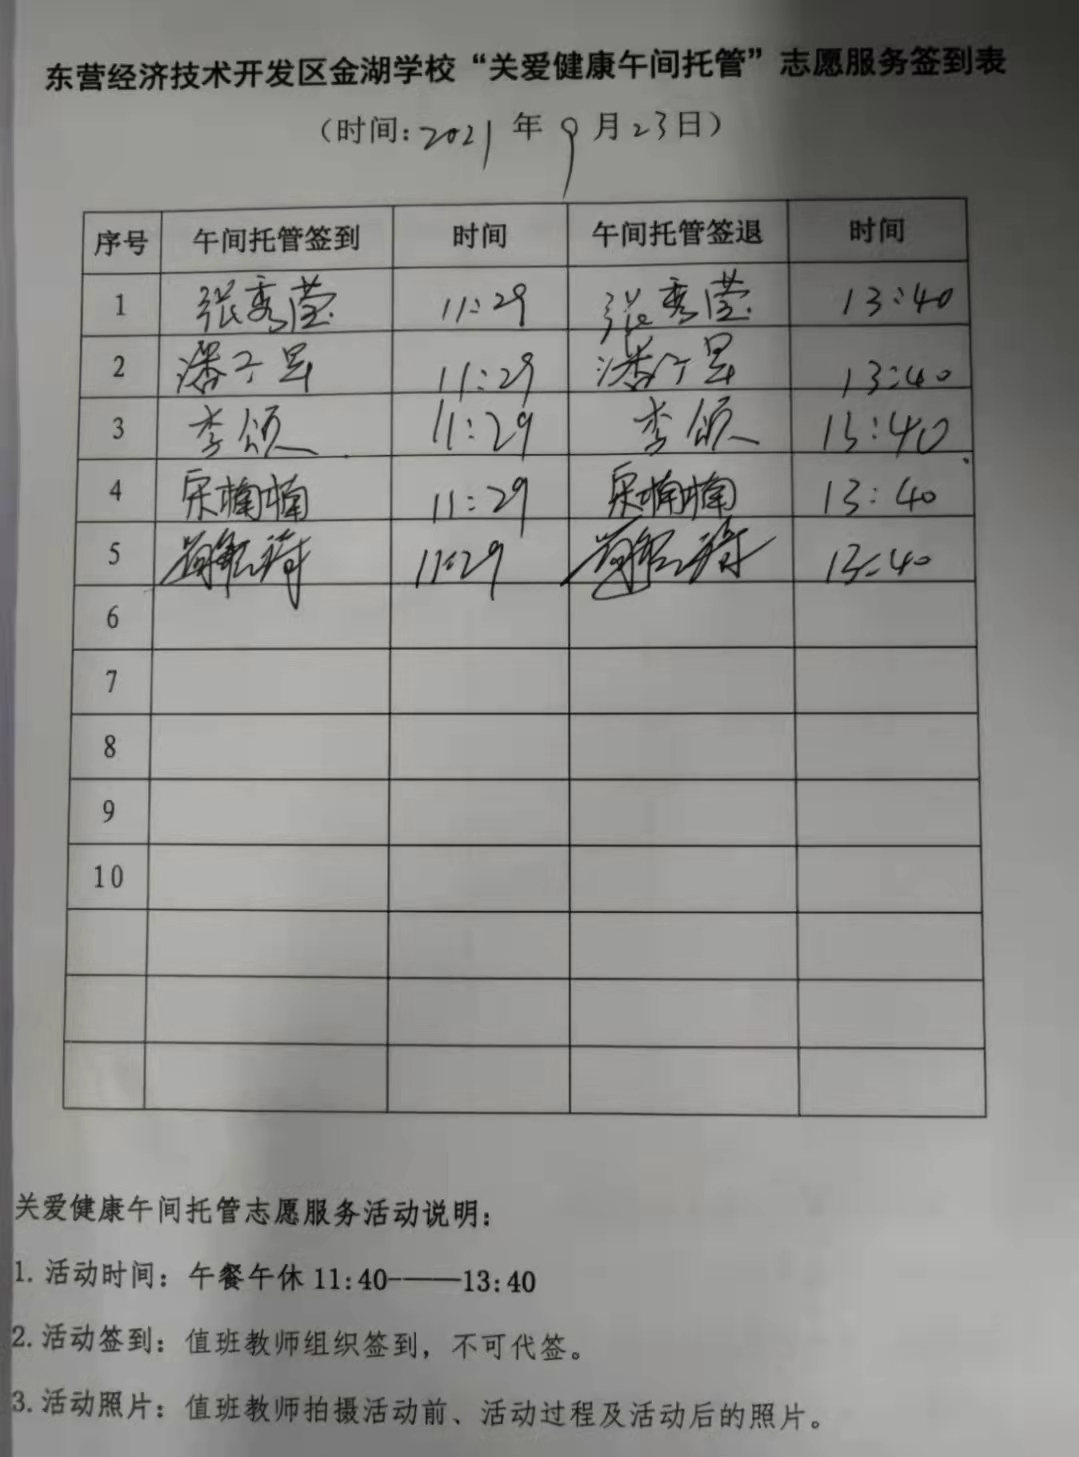 东营经济技术开发区金湖学校“关爱健康午间托管”志愿服务签到表
（时间：2021年9月23日）
序号 午间托管签到 时间 午间托管签退 时间
1 张秀莹 11:29 张秀莹 13:40
2 潘子昱 11:29 潘子昱 13:40
3 李颂 11:29 李颂 13:40
4 宋楠楠 11:29 宋楠楠 13:40
5 11:29 13:40
6
7
8
9
10
关爱健康午间托管志愿服务活动说明：
1.活动时间：午餐午休11:40——13:40
2.活动签到：值班教师组织签到，不可代签。
3.活动照片：值班教师拍摄活动前、活动过程及活动后的照片。